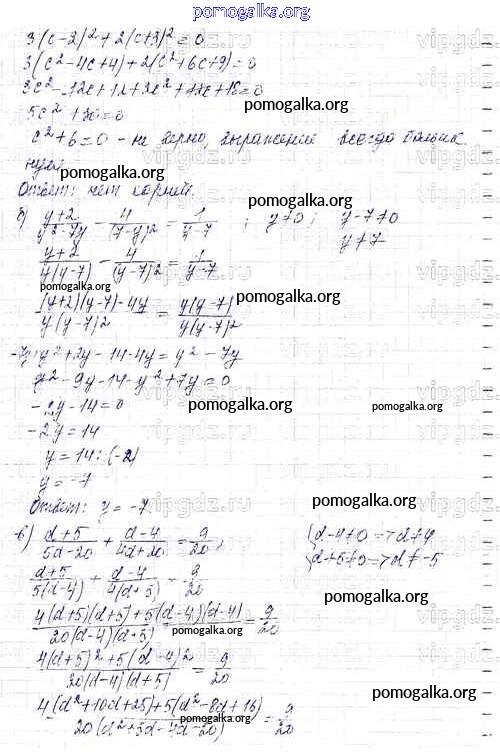 pomogalka.org
3(c-2)²+2(c+3)²=0
3(c²-4c+4)+2(c²+6c+9)=0
3c²-12c+12+2c²+12c+18=0
5c²+30=0
c²+6=0 - не верно, выражение всегда больше
нуля
Ответ: нет корней.
б) (y+2)/(y²-7y) - 4/(7-y)² = 1/(y-7) ; y≠0; y-7≠0
y≠7
(y+2)/(y(y-7)) - 4/(y-7)² = 1/(y-7)
((y+2)(y-7)-4y)/(y(y-7)²) = (y(y-7))/(y(y-7)²)
-7y+y²+2y-14-4y=y²-7y
y²-9y-14-y²+7y=0
-2y-14=0
-2y=14
y=14:(-2)
y=-7
Ответ: y=-7.
в) (d+5)/(5d-20) + (d-4)/(4d+20) = 9/20; d-4≠0=>d≠4
d+5≠0=>d≠-5
(d+5)/(5(d-4)) + (d-4)/(4(d+5)) = 9/20
(4(d+5)(d+5)+5(d-4)(d-4))/(20(d-4)(d+5)) = 9/20
(4(d+5)²+5(d-4)²)/(20(d-4)(d+5)) = 9/20
(4(d²+10d+25)+5(d²-8d+16))/(20(d²+5d-4d-20)) = 9/20